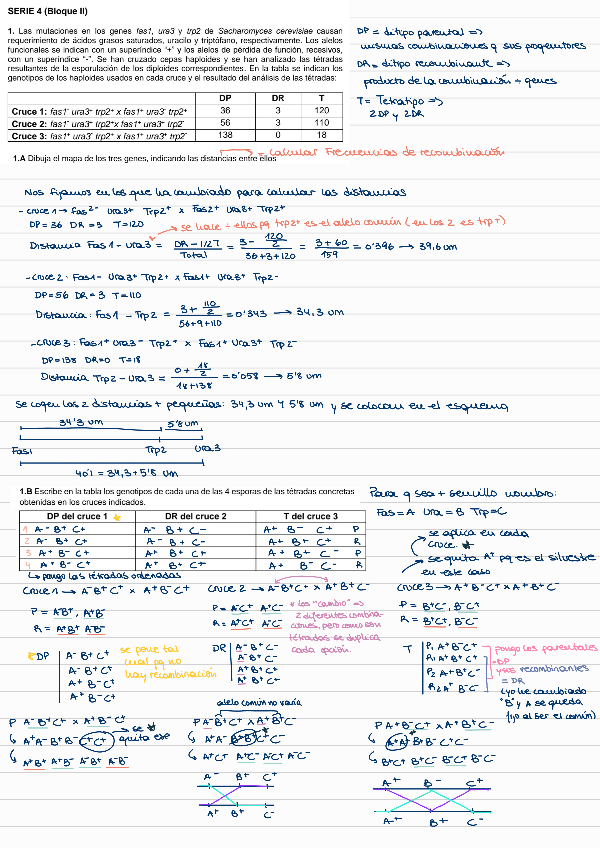 SERIE 4 (Bloque II)
1. Las mutaciones en los genes fas1, ura3 y trp2 de Sacharomyces cerevisiae causan
requerimiento de ácidos grasos saturados, uracilo y triptófano, respectivamente. Los alelos
funcionales se indican con un superíndice "+" y los alelos de pérdida de función, recesivos,
con un superíndice "-". Se han cruzado cepas haploides y se han analizado las tétradas
resultantes de la esporulación de los diploides correspondientes. En la tabla se indican los
genotipos de los haploides usados en cada cruce y el resultado del análisis de las tétradas:
DP = ditipo parental =>
mismas combinaciones q sus progenitores
DR = ditipo recombinante =>
producto de la combinación ÷ genes
T = Tetratipo =>
2DP y 2DR
DP DR T
Cruce 1: fas1- ura3+ trp2+ x fas1+ ura3- trp2+ 36 3 120
Cruce 2: fas1- ura3+ trp2+ x fas1+ ura3+ trp2- 56 3 110
Cruce 3: fas1+ ura3- trp2+ x fas1+ ura3+ trp2- 138 0 18
= calcular Frecuencias de recombinación
1.A Dibuja el mapa de los tres genes, indicando las distancias entre ellos
Nos fijamos en los que ha cambiado para calcular las distancias
- cruce 1 → Fas2- Ura3+ Trp2+ x Fas2+ Ura3+ Trp2+
DP = 36 DR = 3 T = 120
→ se hace ÷ ellos pq trp2+ es el alelo común (en los 2 es trp+)
Distancia Fas1 - Ura3 = DR - 1/2T / Total = 3 - 120/2 / 36+3+120 = 3+60 / 159 = 0'396 → 39,6 um
- cruce 2: Fas1- Ura3+ Trp2+ x Fas1+ Ura3+ Trp2-
DP = 56 DR = 3 T = 110
Distancia: Fas1 - Trp2 = 3 + 110/2 / 56+9+110 = 0'343 → 34,3 um
- cruce 3: Fas1+ Ura3- Trp2+ x Fas1+ Ura3+ Trp2-
DP = 138 DR = 0 T = 18
Distancia Trp2 - Ura3 = 0 + 18/2 / 18+138 = 0'058 → 5'8 um
Se cogen las 2 distancias + pequeñas: 34,3 um y 5'8 um y se colocan en el esquema
34'3 um 5'8 um
Fas1 Trp2 Ura3
40'1 = 34,3 + 5'8 um
1.B Escribe en la tabla los genotipos de cada una de las 4 esporas de las tétradas concretas
obtenidas en los cruces indicados.
Para q sea + sencillo nombro:
Fas = A Ura = B Trp = C
DP del cruce 1 DR del cruce 2 T del cruce 3
1 A- B+ C+ A- B+ C- A+ B- C+ P
2 A- B+ C+ A- B+ C- A+ B+ C+ R
3 A+ B- C+ A+ B+ C+ A+ B+ C- P
4 A+ B- C+ A+ B+ C+ A+ B- C- R
→ se aplica en cada
cruce.
→ se quita A+ pq es el silvestre
en este caso
→ pongo las tétradas ordenadas
cruce 1 → A- B+ C+ x A+ B- C+
cruce 2 → A- B+ C+ x A+ B+ C-
cruce 3 → A+ B- C+ x A+ B+ C-
P = A-B+, A+B-
R = A+B+ A-B-
P = A-C+ A+C-
R = A+C+ A-C-
* los "cambio" =>
2 diferentes combina-
ciones, pero como son
tétradas se duplica
cada opción.
P = B+C-, B-C+
R = B+C+, B-C-
DP
A- B+ C+
A- B+ C+
A+ B- C+
A+ B- C+
se pone tal
cual pq no
hay recombinación
DR
A- B+ C-
A- B+ C-
A+ B+ C+
A+ B+ C+
T
P1 A+ B- C+
R1 A+ B+ C+
P2 A+ B+ C-
R2 A+ B- C-
→ pongo los parentales
= DP
y sus recombinantes
= DR
(yo he cambiado
"B" y A se queda
(q al ser el común)
alelo común no varía
P A- B+ C+ x A+ B- C+
→ se
quita ese
A+A- B+B- C+C+
A+B+ A+B- A-B+ A-B-
P A- B+ C+ x A+ B+ C-
A+A- B+B+ C+C-
A+C+ A+C- A-C+ A-C-
P A+ B- C+ x A+ B+ C-
A+A+ B+B- C+C-
B+C+ B+C- B-C+ B-C-
A- B+ C+
A+ B+ C-
A+ B- C+
A+ B+ C-